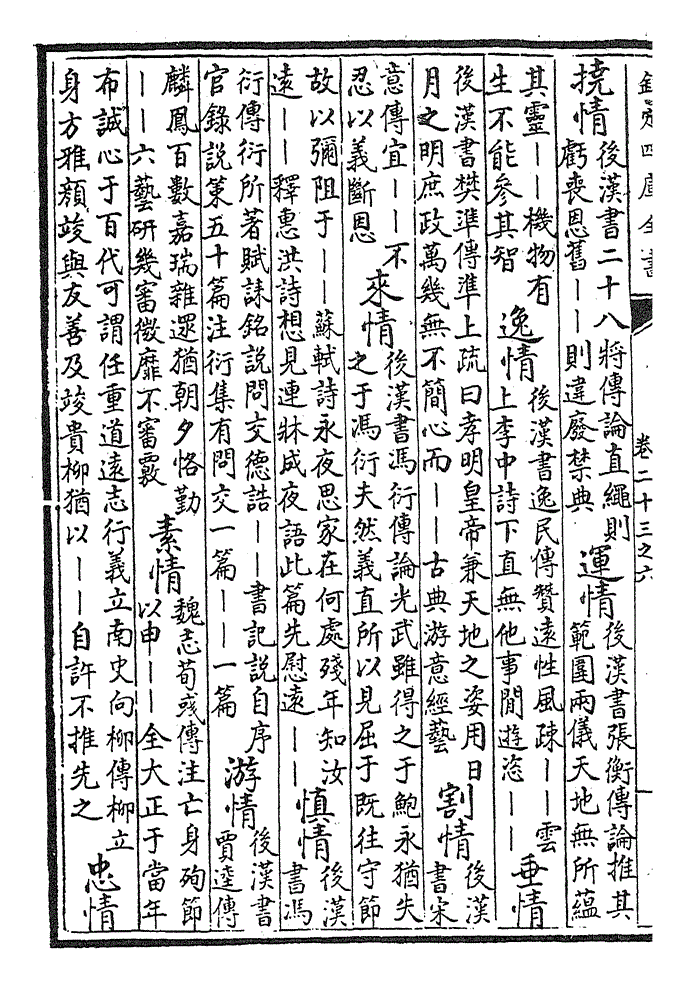 欽定四庫全書 卷二十三之六
撓情
後漢書二十八將傳論直繩則
虧喪恩舊——則違廢禁典
運情
後漢書張衡傳論推其
範圍兩儀天地無所蘊
其靈——機物有
生不能參其智
逸情
後漢書逸民傳贊遠性風疎——雲
上李中詩下直無他事閒遊恣——
垂情
後漢書樊準傳準上疏曰孝明皇帝兼天地之姿用日
月之明庶政萬幾無不簡心而——古典游意經藝
割情
後漢
書宋
意傳宜——不
忍以義斷恩
來情
後漢書馮衍傳論光武雖得之于鮑永猶失
之于馮衍夫然義直所以見屈于既往守節
故以彌阻于——蘇軾詩永夜思家在何處殘年知汝
遠——釋惠洪詩想見連牀成夜語此篇先慰遠——
慎情
後漢
書馮
衍傳衍所著賦誄銘說問交德誥——書記說自序
官錄說策五十篇注衍集有問交一篇——一篇
游情
後漢書
賈逵傳
麟鳳百數嘉瑞雜遝猶朝夕恪勤
——六藝研幾審微靡不審覈
素情
魏志荀彧傳注亡身殉節
以申——全大正于當年
布誠心于百代可謂任重道遠志行義立南史向柳傳柳立
身方雅顏竣與友善及竣貴柳猶以——自許不推先之
忠情